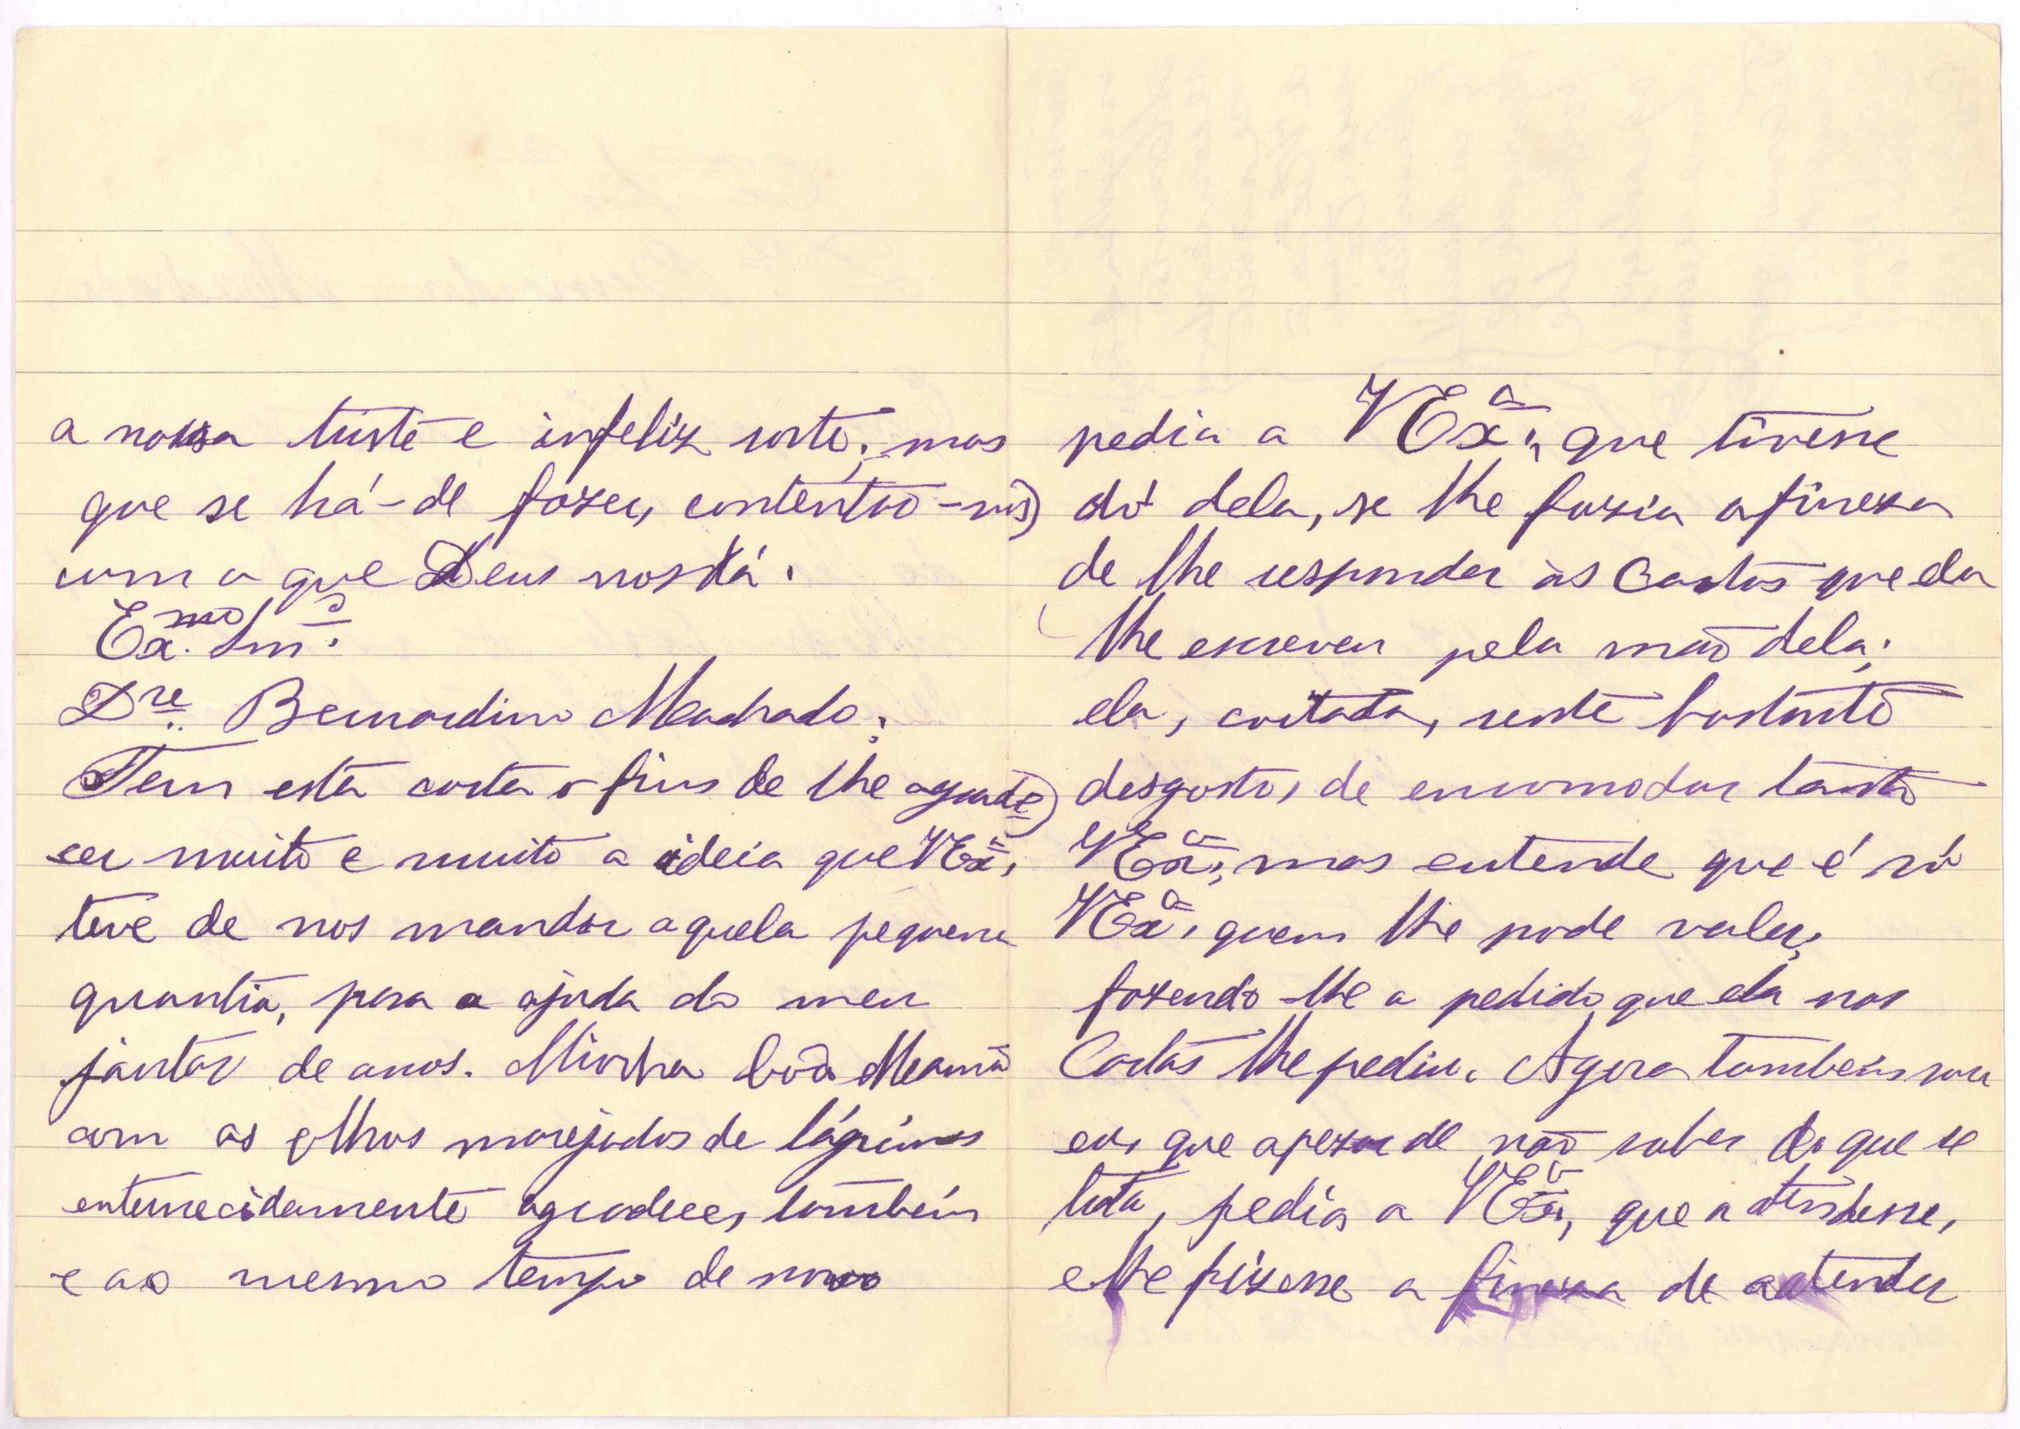 a nossa triste e infeliz sorte; mas
que se há-de fazer, contentão-nós)
com o que Deus nos dá.
Ex.mo Snr.
Dre. Bernardino Machado;
Tem esta carta o fim de lhe agrade)
cer muito e muito a ideia que VExª,
teve de nos mandar aquela pequena
quantia, para a ajuda do meu
jantar de anos. Minha boa Mamã
com os olhos marejados de lágrimas
enternecidamente agradece, também
e ao mesmo tempo de novo
pedia a VExª, que tivesse
dó dela, se lhe fazia a fineza
de lhe responder às Cartas que ela
lhe escreveu pela mão dela;
ela, coitada, sente bastante
desgosto, de encomodar tanto
VExª, mas entende que é só
VExª, quem lhe pode valer,
fazendo-lhe o pedido que ela nas
Cartas lhe pediu. Agora também sou
eu, que apezar de não saber do que se
trata, pedia a VExª, que a atendesse,
e lhe fizesse a fineza de atender